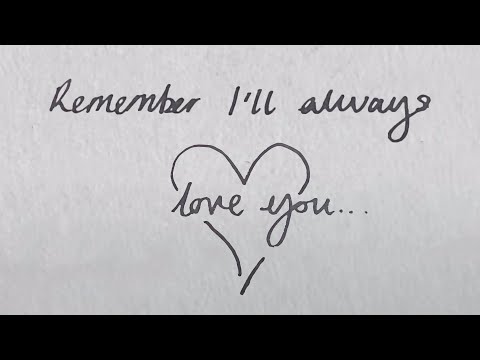 Remember I'll always
love you...